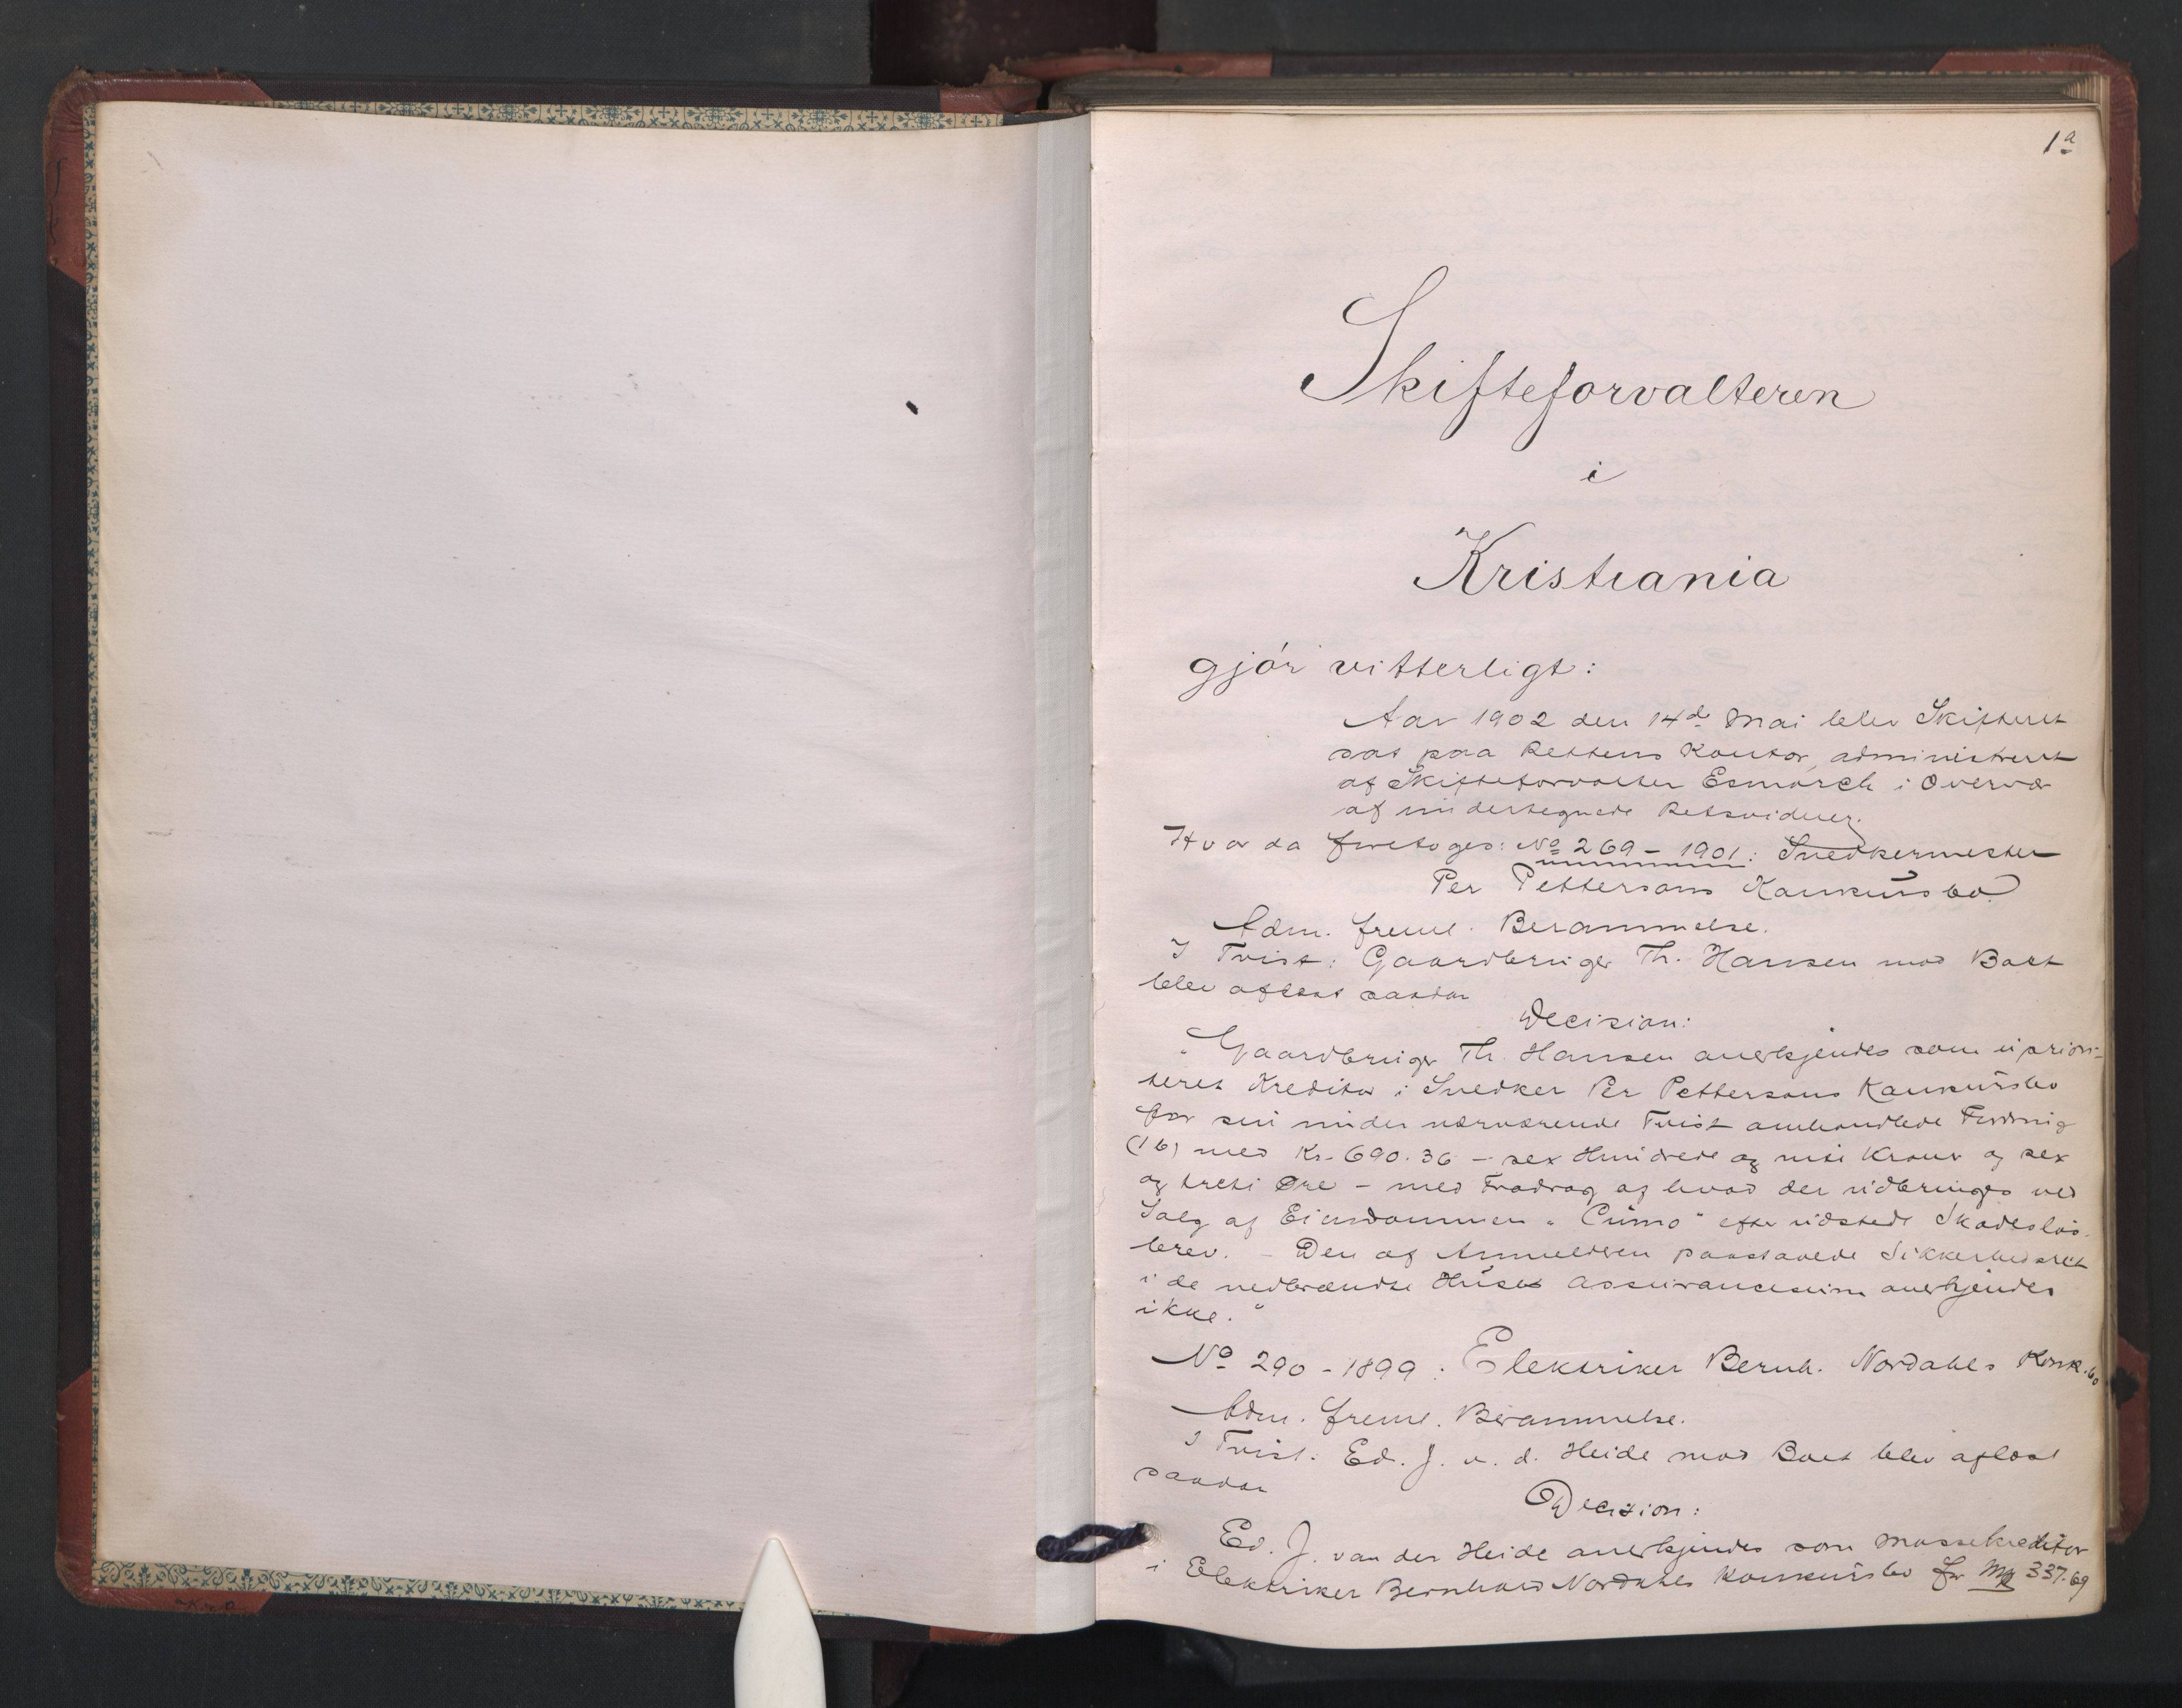 1a
Skifteforvalteren
i
Kristiania
gjör vitterligt:
Aar 1902 den 14d Mai blev Skifteret
sat paa Rettens Kontor, administreret
af Skifteforvalter Esmarch i Overvær
af undertegnede Retsvidner.
Hvorda foretoges: No 269 - 1901: Snedkermester
Per Pettersons Konkursbo.
Adm. freml. Berammelse.
I Tvist: Gaardbruger Th. Hansen mod Boet
blev aflæst saadan
Decision:
"Gaardbruger Th. Hansen anerkjendes som uprior-
teret Kreditor i Snedker Per Pettersons Konkursbo
for sin under nærværende Tvist omhandlede Fordring
(16) med Kr. 690.36 - sex Hundrede og niti Kroner og sex
og treti Øre - med Fradrag af hvad der udbringes ved
Salg af Eiendommen "Cumo" efter udstedt Skadeslös-
brev. - Den af Anmelderen paastaaede Sikkerhedsret
i de nedbrændte Huses Assurancesum anerkjendes
ikke."
No 290 - 1899: Elektriker Bernh. Nordahls Konk.bo
Adm. freml. Berammelse.
I Tvist: Ed. J. v. d. Heide mod Boet blev aflæst
saadan
Decision:
Ed. J. van der Heide anerkjendes som Massekreditor
i Elektriker Bernhard Nordahls Konkursbo for Mk 337.69